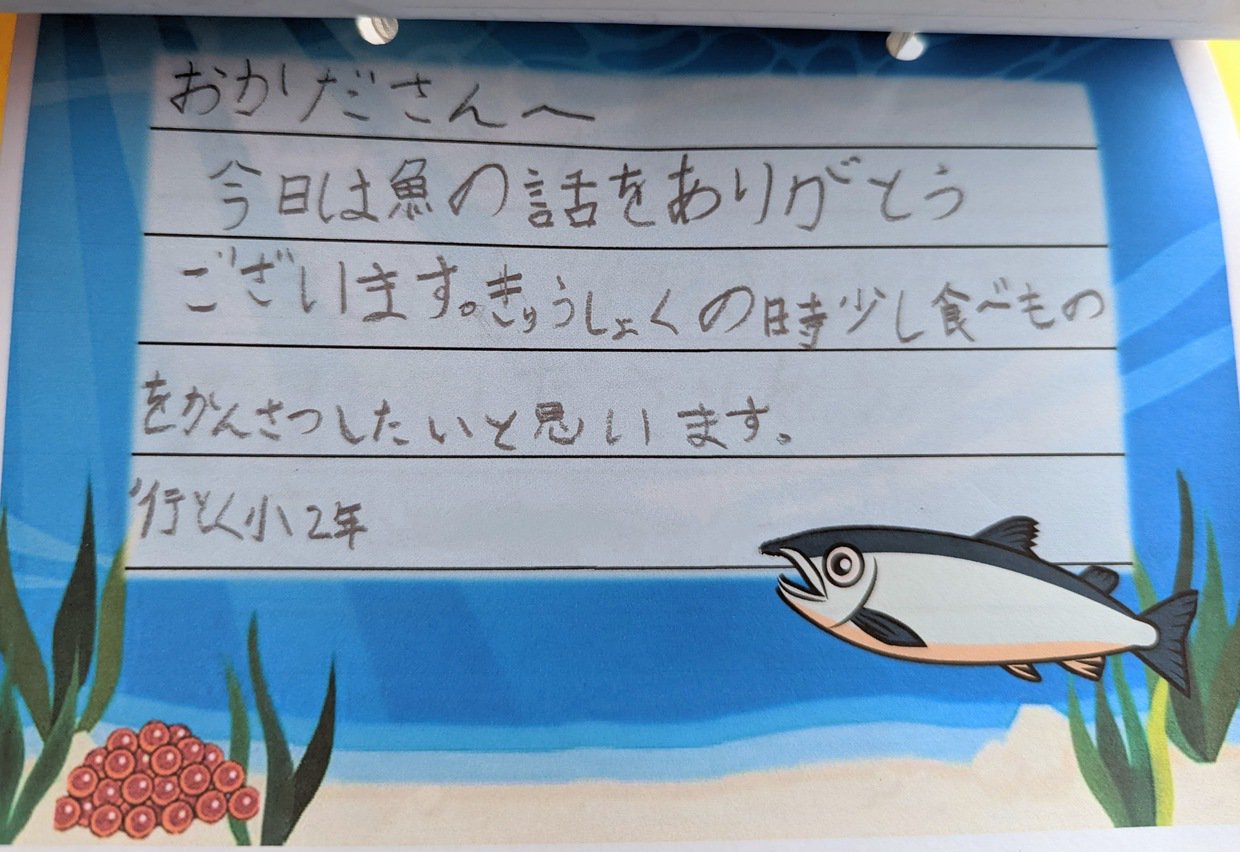 おかださんへ
今日は魚の話をありがとう
ございます。きゅうしょくの時少し食べもの
をかんさつしたいと思います。
行とく小2年